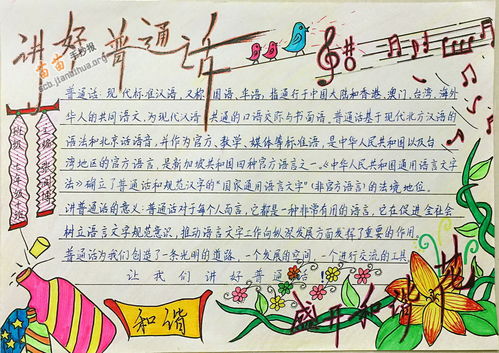 讲好普通话
苗苗手抄报
scb.jianbihua.org
普通话:现代标准汉语,又称国语、华语,指通行于中国大陆和香港、澳门、台湾、海外
华人的共同语文,为现代汉语共通的口语交际与书面语。普通话基于现代北方汉语的
语法和北京话语音,并作为官方、教学、媒体等标准语,是中华人民共和国以及台
湾地区的官方语言,是新加坡共和国四种官方语言之一。《中华人民共和国通用语言文字
法》确立了普通话和规范汉字的“国家通用语言文字”(非官方语言)的法境地位。
讲普通话的意义:普通话对于每个人而言,它都是一种非常有用的语言,它在促进全社会
树立语言文字规范意识,推动语言文字工作向纵深发展方面发挥了重要的作用。
普通话为我们创造了一条光明的道路、一个发展的空间、一个进行交流的工具。
让我们讲好普通话!
和谐
盛开和谐的花